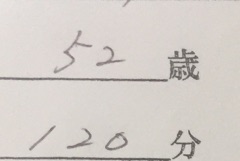 52歳
120分